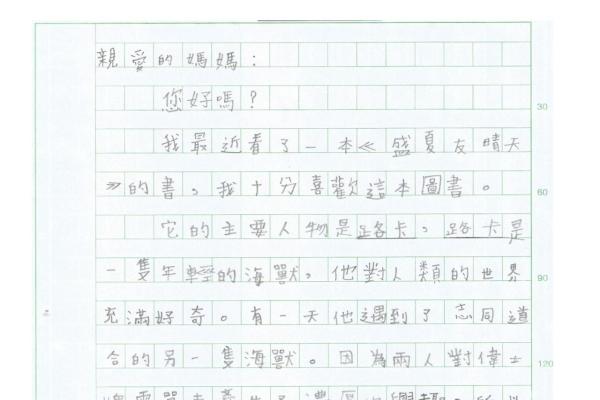 親愛的媽媽：
您好嗎？
30
我最近看了一本《盛夏友晴天
》的書，我十分喜歡這本圖書。
60
它的主要人物是路卡，路卡是
一隻年輕的海獸，他對人類的世界
90
充滿好奇。有一天他遇到了志同道
合的另一隻海獸。因為兩人對偉士
120